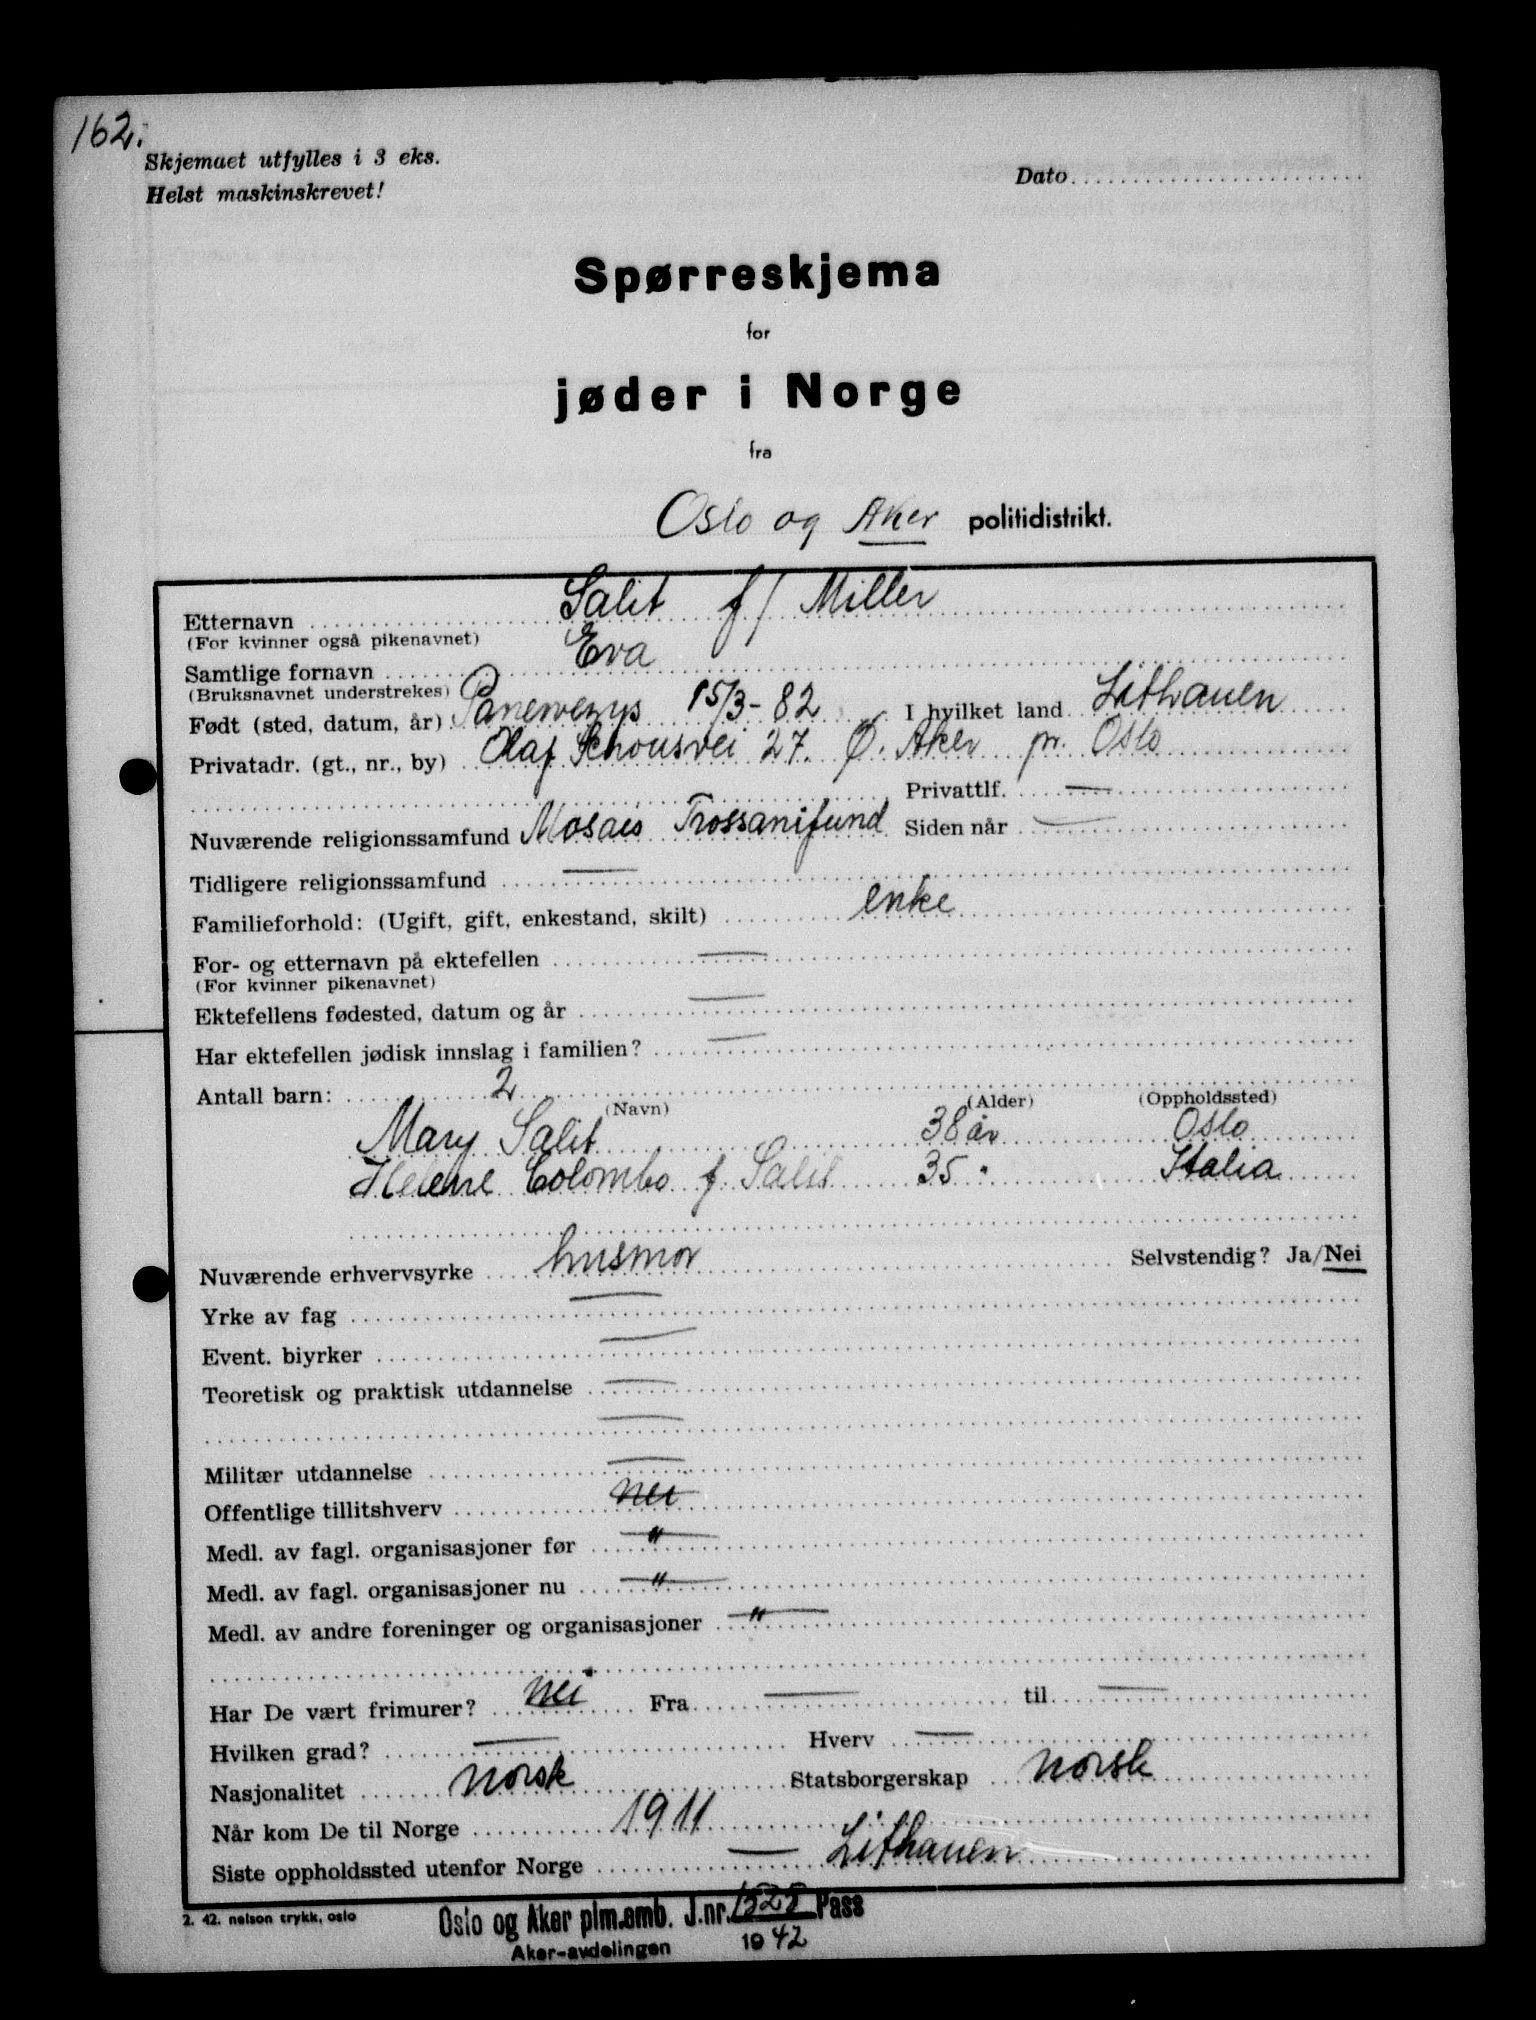 162.
Skjemaet utfylles i 3 eks.
Helst maskinskrevet!
Dato
Spørreskjema
for
jøder i Norge
fra
Oslo og Aker politidistrikt.
Etternavn Salit f/ Miller
(For kvinner også pikenavnet)
Samtlige fornavn Eva
(Bruksnavnet understrekes)
Født (sted, datum, år) Panewezys 15/3-82 I hvilket land Lithauen
Privatadr. (gt., nr., by) Olaf Schousvei 27. Ø. Aker pr. Oslo
Privattlf. —
Nuværende religionssamfund Mosais Trossamfund Siden når —
Tidligere religionssamfund —
Familieforhold: (Ugift, gift, enkestand, skilt) enke
For- og etternavn på ektefellen —
(For kvinner pikenavnet)
Ektefellens fødested, datum og år —
Har ektefellen jødisk innslag i familien? —
Antall barn: 2
(Navn) (Alder) (Oppholdssted)
Mary Salit 38 år Oslo
Helene Colombo f. Salit 35 " Italia
Nuværende erhvervsyrke husmor Selvstendig? Ja/Nei
Yrke av fag —
Event. biyrker —
Teoretisk og praktisk utdannelse —
—
Militær utdannelse —
Offentlige tillitshverv nei
Medl. av fagl. organisasjoner før — " —
Medl. av fagl. organisasjoner nu — " —
Medl. av andre foreninger og organisasjoner — " —
Har De vært frimurer? nei Fra — til —
Hvilken grad? — Hverv —
Nasjonalitet norsk Statsborgerskap norsk
Når kom De til Norge 1911
Siste oppholdssted utenfor Norge — Lithauen
2. 42. nelson trykk, oslo
Oslo og Aker plm.emb. J.nr. Pass
Aker-avdelingen 1942